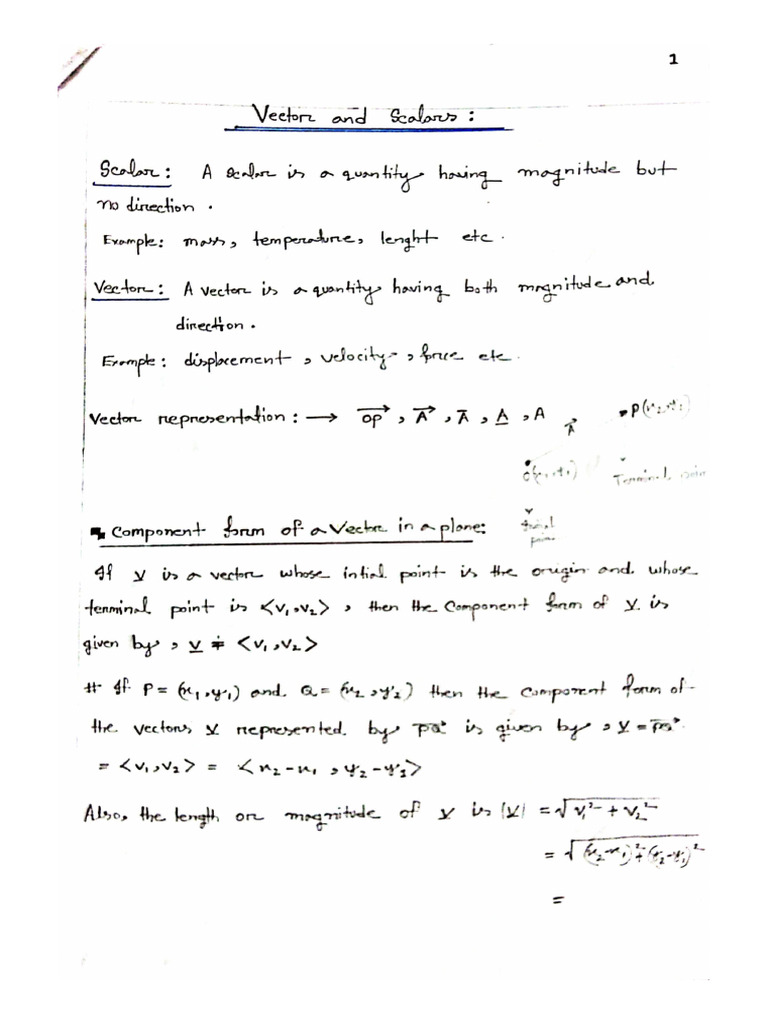 1
Vector and Scalars :
Scalar : A scalar is a quantity having magnitude but
no direction .
Example : mass, temperature, lenght etc .
Vector : A vector is a quantity having both magnitude and
direction .
Example : displacement , velocity , force etc .
Vector representation : → \overrightarrow{OP} , \overrightarrow{A} , \overline{A} , \underline{A} , A
Terminal
Component form of a Vector in a plane:
If \underline{v} is a vector whose intial point is the origin and whose
terminal point is <v₁,v₂> , then the component form of \underline{v} is
given by , \underline{v} = <v₁,v₂>
# If P = (x₁,y₁) and Q = (x₂,y₂) then the component form of
the vectors \underline{v} represented by \overrightarrow{PQ} is given by , \underline{v} = \overrightarrow{PQ}
= <v₁,v₂> = <x₂-x₁ , y₂-y₁>
Also, the length or magnitude of \underline{v} is |\underline{v}| = √(v₁² + v₂²)
= √((x₂-x₁)²+(y₂-y₁)²)
=